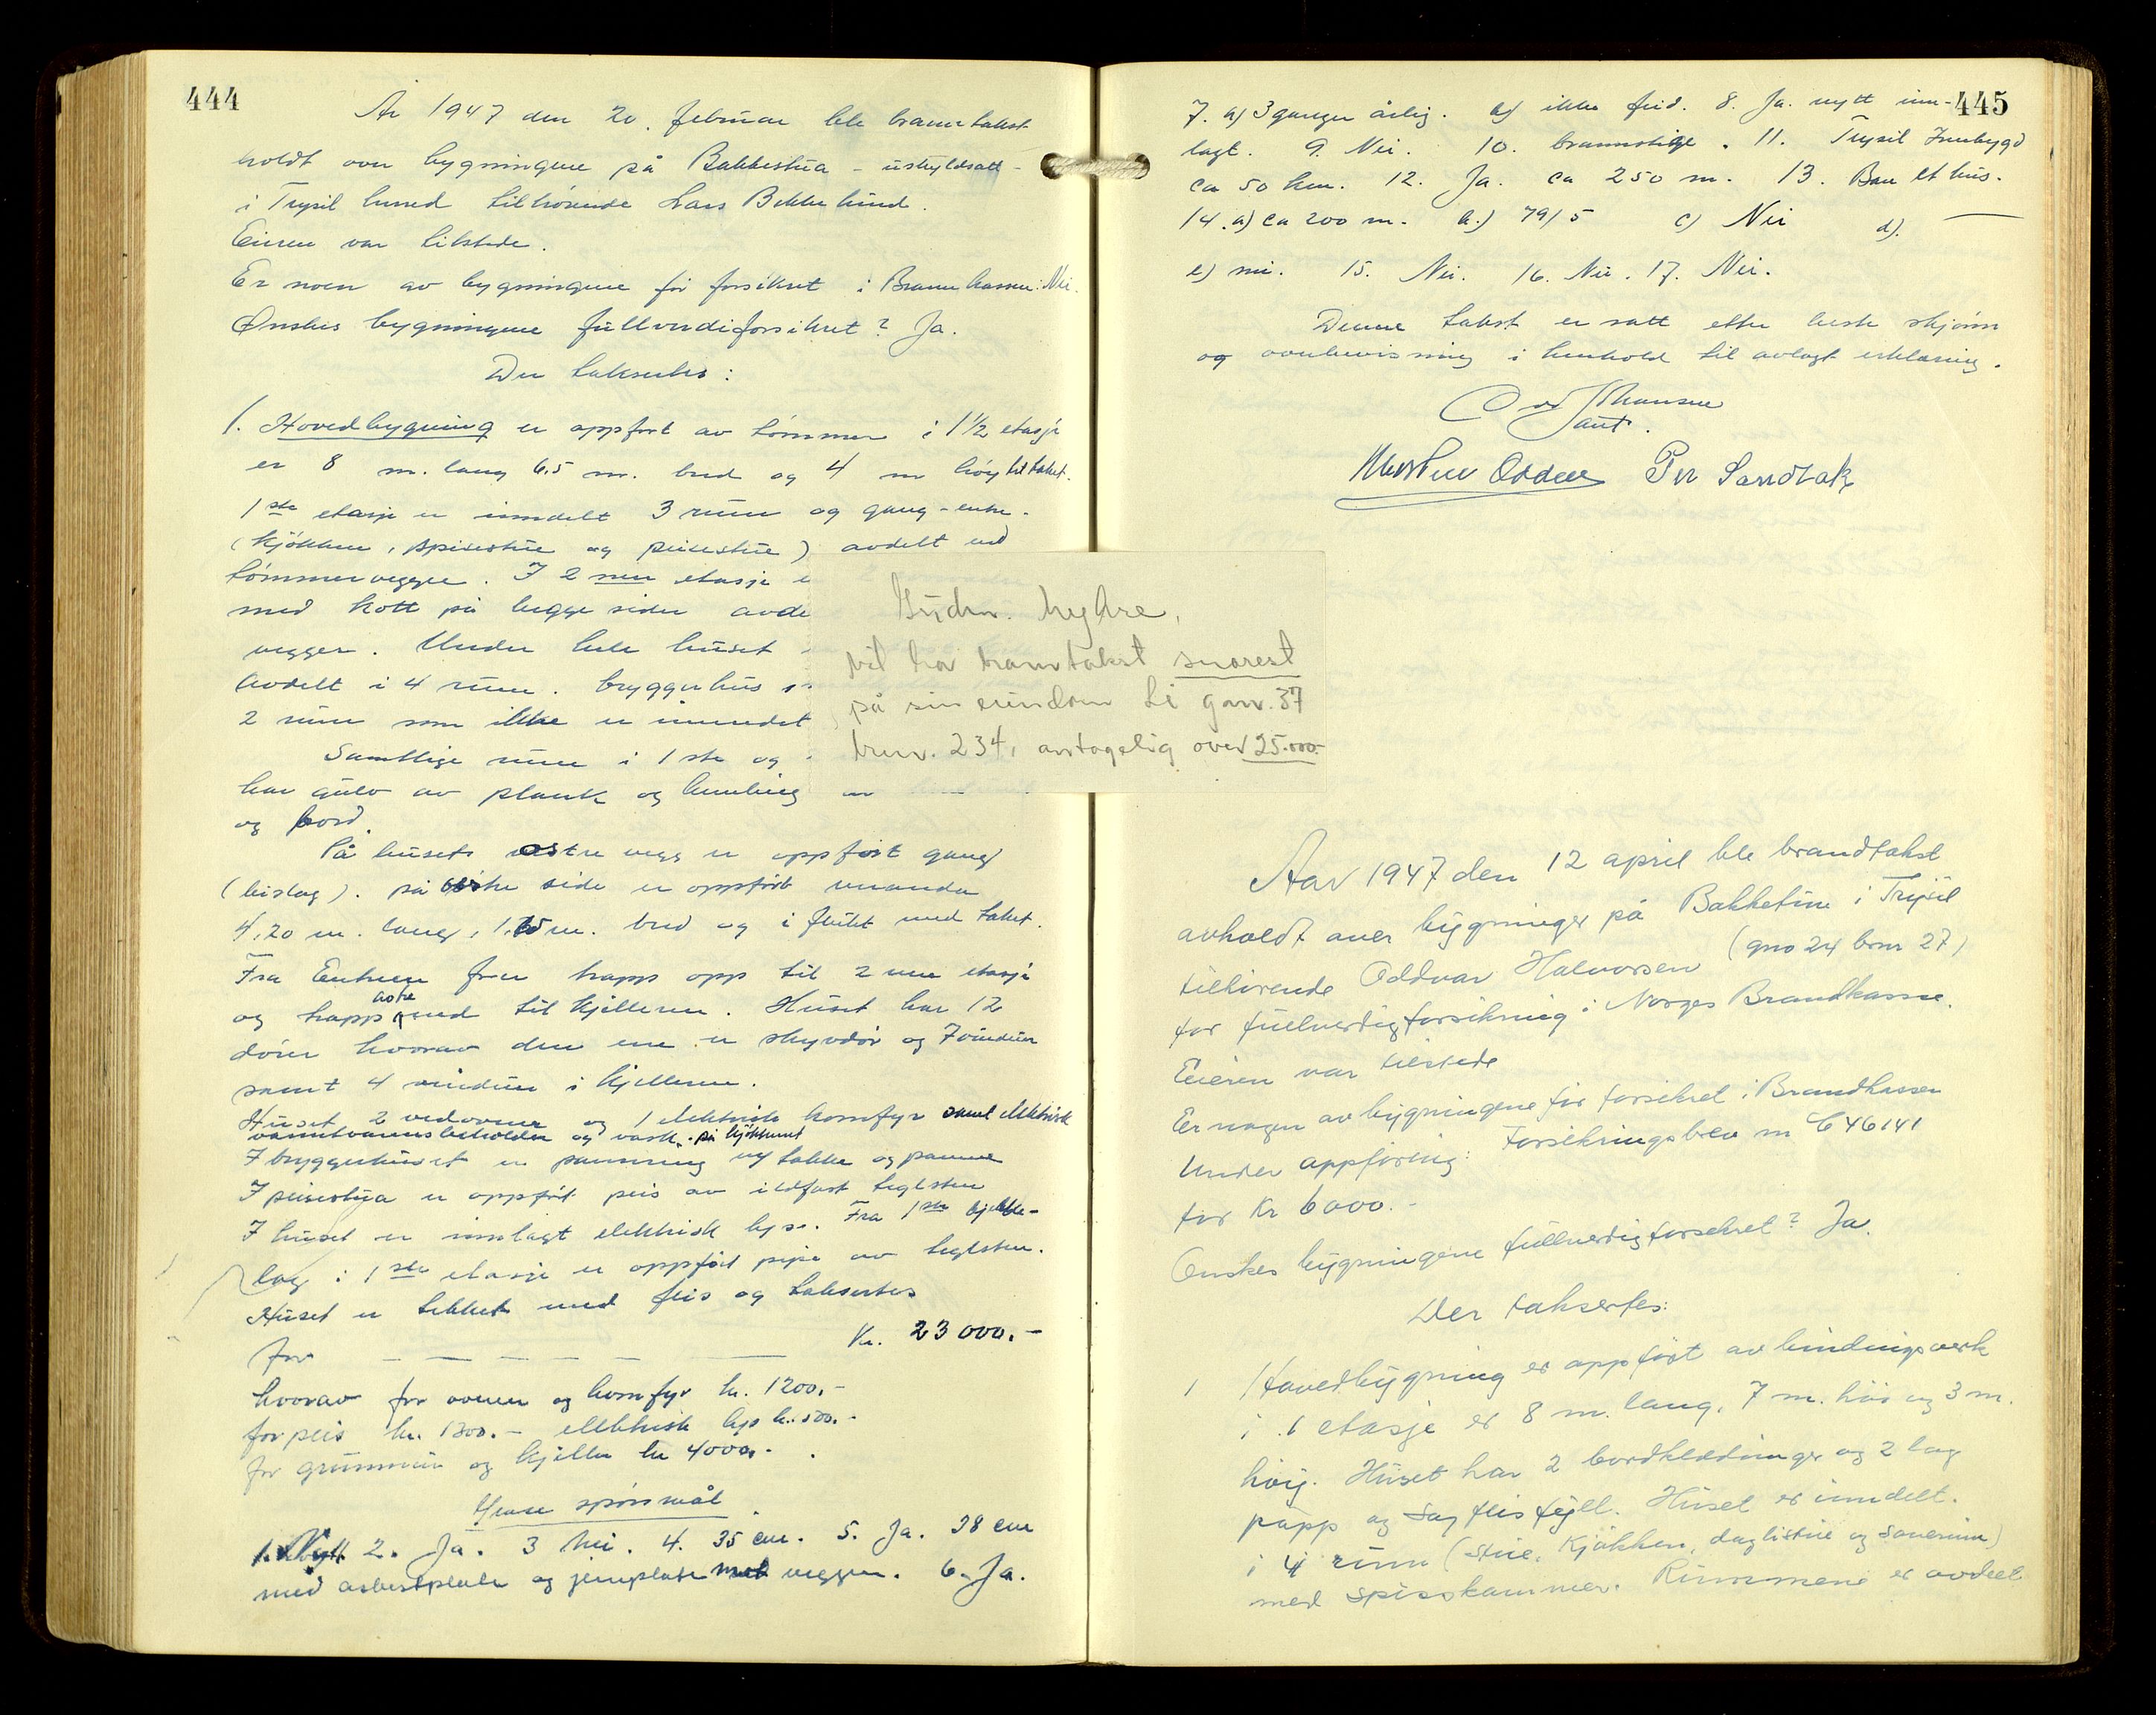 444
År 1947 den 20. februar ble branntakst
holdt over bygningene på Bakkestua - uskyldsatt -
i Trysil herred tilhörende Lars Bekkelund.
Eieren var tilstede.
Er noen av bygningene för forsikret i Brannkassen: Nei.
Önskes bygningene fullverdiforsikret? Ja.
Der takseertes:
1. Hovedbygning er oppfört av tömmer i 1 1/2 etasje
er 8 m. lang 6,5 m. bred og 4 m höy til taket.
1ste etasje er inndelt 3 rum og gang - entre.
(Kjökken, spisestue og peisestue) avdelt med
tömmervegger. I 2 nen etasje e
med kott på begge sider avde
vegger. Under hele huset
avdelt i 4 rum. bryggerhus
2 rum som ikke er innredet
Samtlige rum i 1 ste og
har gulv av plank og himling
og bord.
På husets östre vegg er oppfört gang
(bislag). på side er oppfört veranda
4,20 m. lang, 1,65 m. bred og i flukt med taket.
Fra Entreen förer trapp opp til 2 nen etasje
og trapp ned til kjelleren. Huset har 12
dörer hvorav den ene er skyvdör og 7 vinduer
samt 4 vinduer i kjelleren.
Huset 2 vedovner og 1 elektrisk komfyr samt elektrisk
varmtvannsbeholder og vask. på kjökkenet
I bryggerhuset er panmuring m/ takke og panne
I peisestua er oppfört peis av ildfast teglsten
I huset er innlagt elektrisk lys. Fra 1ste bjelke-
lag i 1ste etasje er oppfört pipe av teglsten.
Huset er tekket med flis og takseertes
for — — — — — — Kr. 23 000.-
hvorav for ovner og komfyr kr. 1200.-
for peis kr. 1300.- elektrisk lys kr. 500.-
for grunnmur og kjeller kr 4000.-
Yense spörsmål
1. Nytt 2. Ja. 3 Nei. 4. 35 cm. 5. Ja. 38 cm
med asbestplate og jernplate mot veggen. 6. Ja.
Gudm. Nyhre,
vil ha branntakst snarest
på sin eiendom Li gnr. 37
brnr. 234, antagelig over 25.000.-
445
7. a) 3 ganger årlig. b) ikke feid. 8. Ja. nytt inn-
lagt. 9. Nei. 10. brannstige. 11. Trysil Innbygd
ca 50 km. 12. Ja. ca 250 m. 13. Bare et hus.
14. a) ca 200 m. b.) 79/5 c) Nei d). —
e) nei. 15. Nei. 16. Nei. 17. Nei.
Denne takst er satt etter beste skjönn
og overbevisning i henhold til avlagt erklæring.
Odd Thansen
Lant.
Marten Odden Per Sandbak
Aar 1947 den 12 april ble brandtakst
avholdt over bygninger på Bakketun i Trysil
tilhörende Oddvar Halvorsen (gno 24 brnr 27)
for fullverdigforsikring i Norges Brandkasse.
Eieren var tilstede
Er nogen av bygningene för forsikret i Brandkassen
Under oppföring: Forsikringsbev nr C 46141
for Kr 6000.-
Önskes bygningene fullverdigforsikret? Ja.
Der taksertes:
1 Hovedbygning er oppfört av bindingsverk
i 1 etasje er 8 m. lang, 7 m. höi og 3 m.
höig. Huset har 2 bordklædninger og 2 lag
papp og sagflisfyll. Huset er inndelt.
i 4 rum (Stue, Kjökken, daglistue og soverum)
med spisskammer. Rummene er avdeel